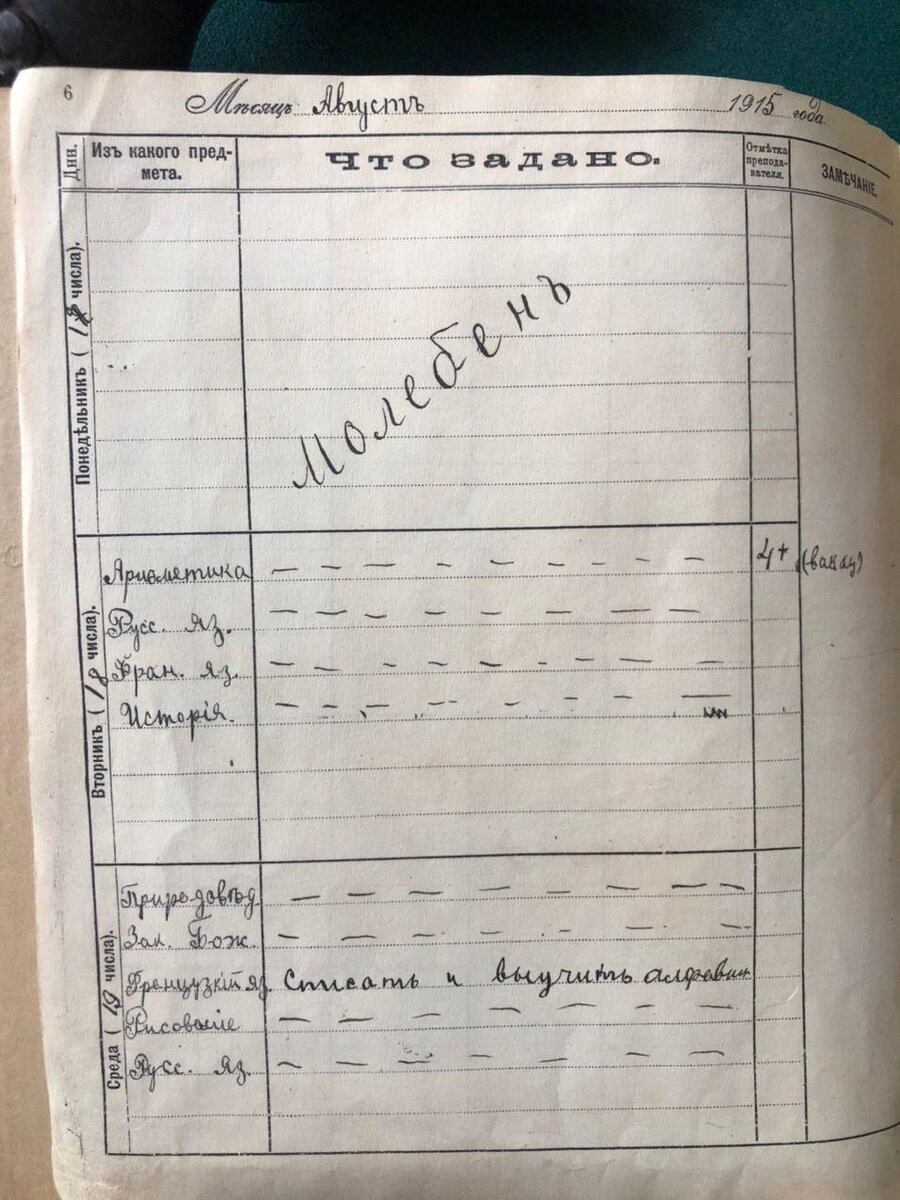 6
Мѣсяцъ Августъ 1915 года.
Дни. Изъ какого предмета. Что задано. Отмѣтка преподавателя. ЗАМѢЧАНІЕ.
Понедѣльникъ ( числа).
Молебенъ
Вторникъ (18 числа).
Ариѳметика 4+
Русс. яз.
Фран. яз.
Исторія.
Среда (19 числа).
Природовѣд
Зак. Бож.
Френцузкій яз. Списать и выучить алфавит
Рисованіе
Русс. яз.